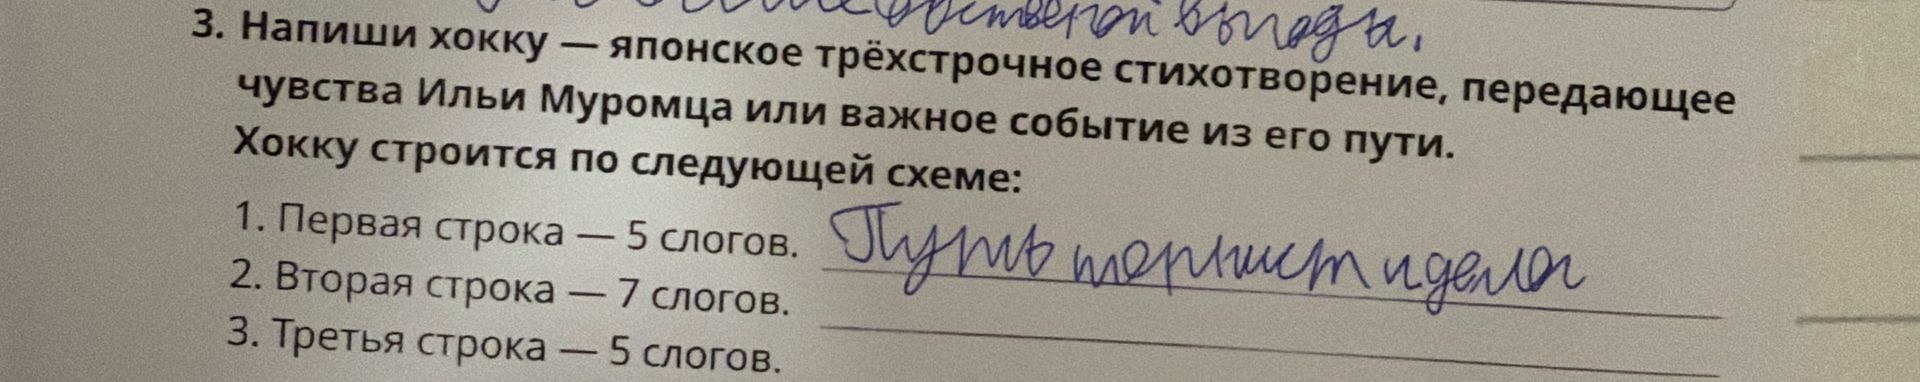 собственной выгоды.
3. Напиши хокку — японское трёхстрочное стихотворение, передающее
чувства Ильи Муромца или важное событие из его пути.
Хокку строится по следующей схеме:
1. Первая строка — 5 слогов. Путь тернист и дела
2. Вторая строка — 7 слогов.
3. Третья строка — 5 слогов.